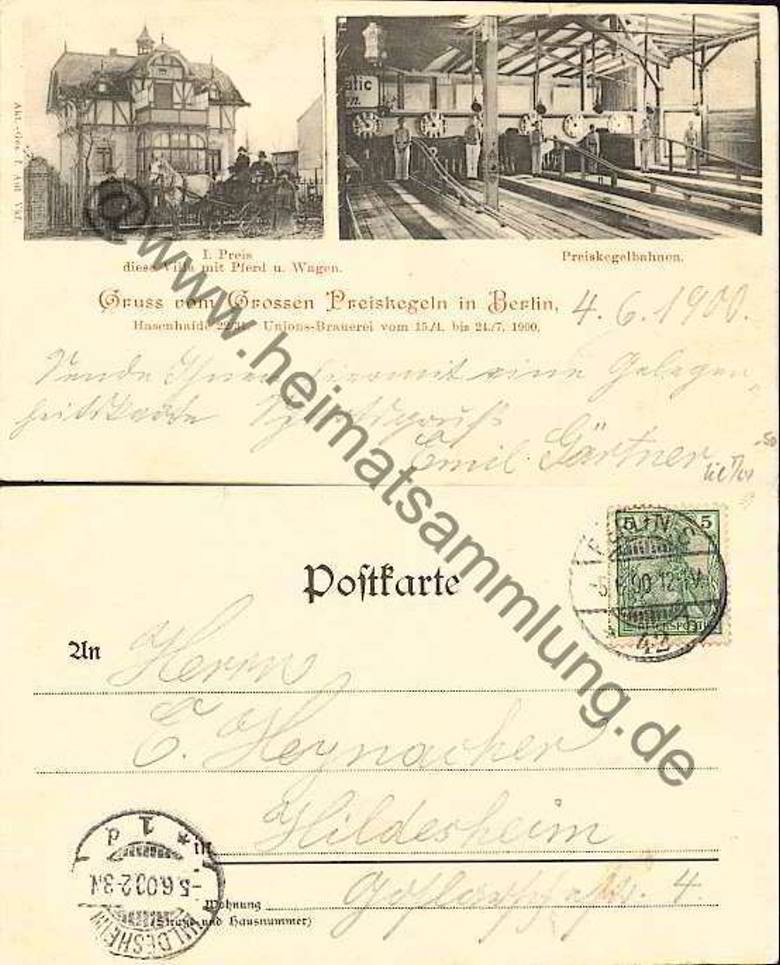 atic
en.
I. Preis
diese Villa mit Pferd u. Wagen.
Preiskegelbahnen.
Gruss vom Grossen Preiskegeln in Berlin, 4.6.1900.
Hasenhaide 22/31. Unions-Brauerei vom 15./4. bis 24./7. 1900.
Sende Ihnen hiermit eine Gelegen-
heitskarte
Emil Gärtner
www.heimatsammlung.de
Postkarte
5 5
REICHSPOST
BERLIN S
-5.6.00 12-1N
42
An Herrn
E. Heynacher
in Hildesheim
Wohnung 4
(Straße und Hausnummer)
* 1 d
-5.6.00 2-3N
HILDESHEIM